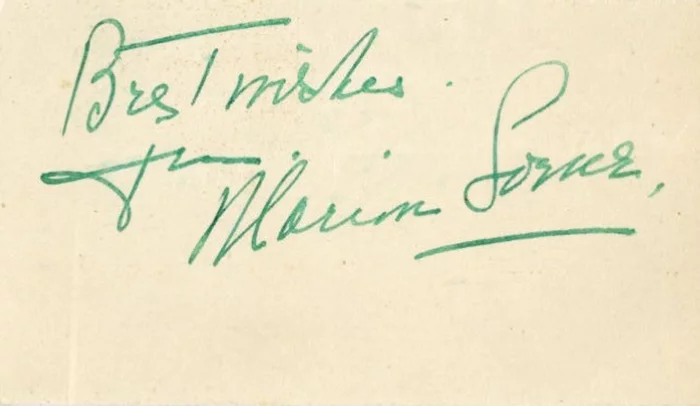 Best wishes.
from
Marion Lorne,